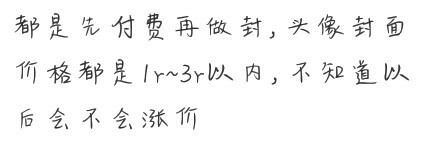 都是先付费再做封,头像封面
价格都是1r~3r以内,不知道以
后会不会涨价